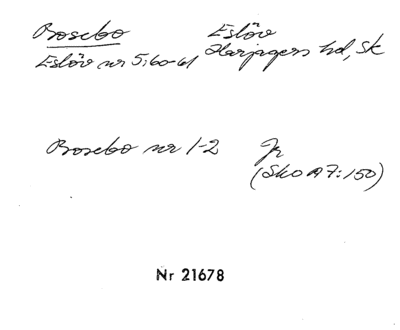 Bosebo Eslöv
Eslöv nr 5:60-61 Harjagers hd, Sk
Bosebo nr 1-2 Jr
(Sko A7:150)
Nr 21678